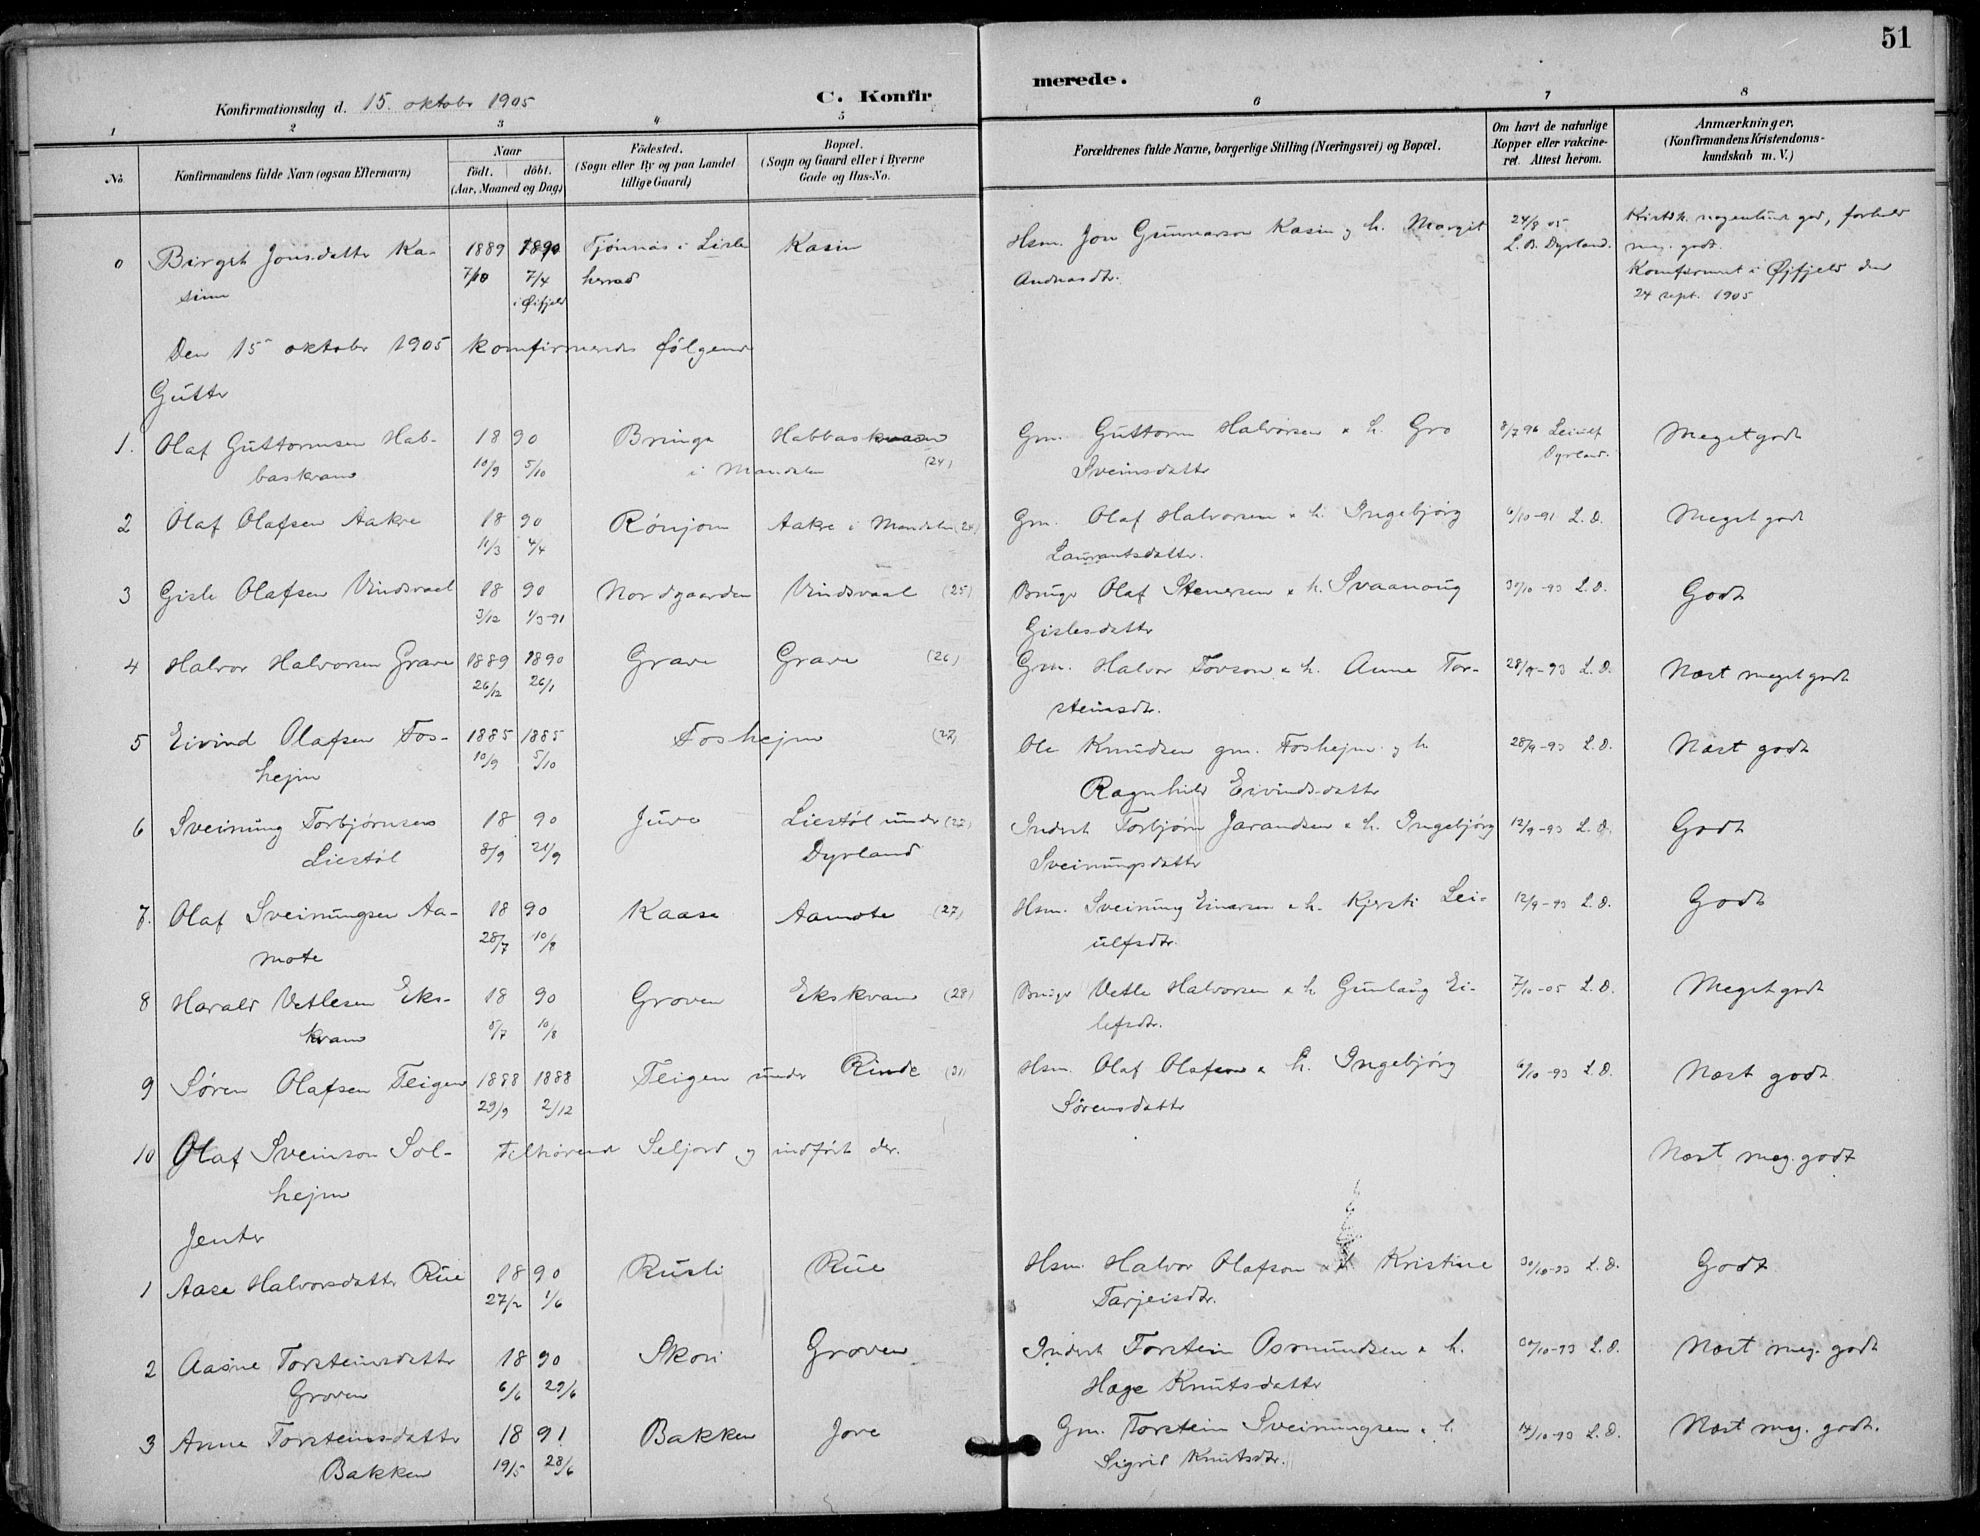 51
Konfirmationsdag d. 15. oktober 1905
C. Konfirmerede.
1 2 3 4 5 6 7 8
No.
Konfirmandens fulde Navn (ogsaa Efternavn)
Naar
födt. döbt.
(Aar, Maaned og Dag)
Födested.
(Sogn eller By og paa Landet
tillige Gaard)
Bopæl.
(Sogn og Gaard eller i Byerne
Gade og Hus-No.
Forældrenes fulde Navne, borgerlige Stilling (Næringsvei) og Bopæl.
Om havt de naturlige
Kopper eller vakcine-
ret. Attest herom.
Anmærkninger.
(Konfirmandens Kristendoms-
kundskab m. V.)
0 Birget Jonsdatter Ka- 1889 1890 Tjønnås i Lisle Kasin Hsm. Jon Gunnarson Kasin & h. Margit 24/8 05 Kristk. nogenlund god, forhold
sinn 7/10 7/4 herad Andrasdtr. L. B. Dyrland. meg. godt.
i Øifjeld Konfirmert i Øifjeld den
24 sept. 1905
Den 15 oktober 1905 konfirmeredes følgende
Gutter
1. Olaf Guttormsen Hab- 1890 Bringa Habbaskvam Gm. Guttorm Halvorsen & h. Gro 8/7 96 Leiulf Meget godt
baskvam 10/9 5/10 i Mandalen (24) Sveinsdatter Dyrland.
2 Olaf Olafsen Aakre 1890 Rönjom Aakre i Mandalen (24) Gm. Olaf Halvorsen & h. Ingebjörg 6/10-91 L. D. Meget godt
11/3 4/4 Laurantsdatter.
3 Gisle Olafsen Vindsvaal 1890 Nordgaarden Vindsvaal (25) Bruger Olaf Stenersen & h. Svaanoug 30/10-93 L. D. Godt
3/12 1/3-91 Gislesdatter
4 Halvor Halvorsen Grave 1889 1890 Grave Grave (26) Gm. Halvor Tovson & h. Anne Tor- 28/9-93 L. D. Næst meget godt
26/12 26/1 steinsdtr.
5 Eivind Olafsen Fos- 1885 1885 Foshejm (27) Ole Knudsen gm. Foshejm & h. 28/9-93 L. D. Næst godt
hejm 10/9 5/10 Ragnhild Eivindsdatter
6 Sveinung Torbjørnsen 1890 Juve Liestöl under (27) Inderst Torbjörn Jarandsen & h. Ingebjörg 12/9-93 L. D. Godt
Liestöl 8/9 21/9 Dyrland Sveinungsdatter
7. Olaf Sveinungsen Aa- 1890 Kaasa Aamote (27) Hsm. Sveinung Einarsen & h. Kjersti Lei- 12/9-93 L. D. Godt
mote 28/7 10/8 ulfsdtr.
8 Harald Vetlesen Eks- 1890 Groven Ekskvam (28) Bruger Vetle Halvorsen & h. Gunlaug Ei- 7/10-05 L. D. Meget godt
kvam 5/7 10/8 lefsdtr.
9 Søren Olafsen Teigen 1888 1888 Teigen under Rinde (31) Hsm. Olaf Olafsen & h. Ingebjörg 6/10-93 L. D. Næst godt
29/9 2/12 Sörensdatter
10 Olaf Sveinson Sol- Tilhørende Seljord og indfört der. Næst meg. godt
hejm
Jenter
1 Aase Halvorsdatter Rue 1890 Rusli Rue Hsm. Halvor Olafson & h Kristine 30/10-93 L. D. Godt
27/2 1/6 Tarjeisdtr.
2 Aasne Torsteinsdatter 1890 Skori Groven Inderst Torstein Osmundsen & h. /10-93 L. D. Næst meg. godt
Groven 6/6 29/6 Hage Knutsdatter
3 Anne Torsteinsdatter 1891 Bakken Jore Gm. Torstein Sveinungsen & h. 14/10-93 L. D. Næst meg. godt.
Bakken 19/5 28/6 Sigrid Knutsdtr.